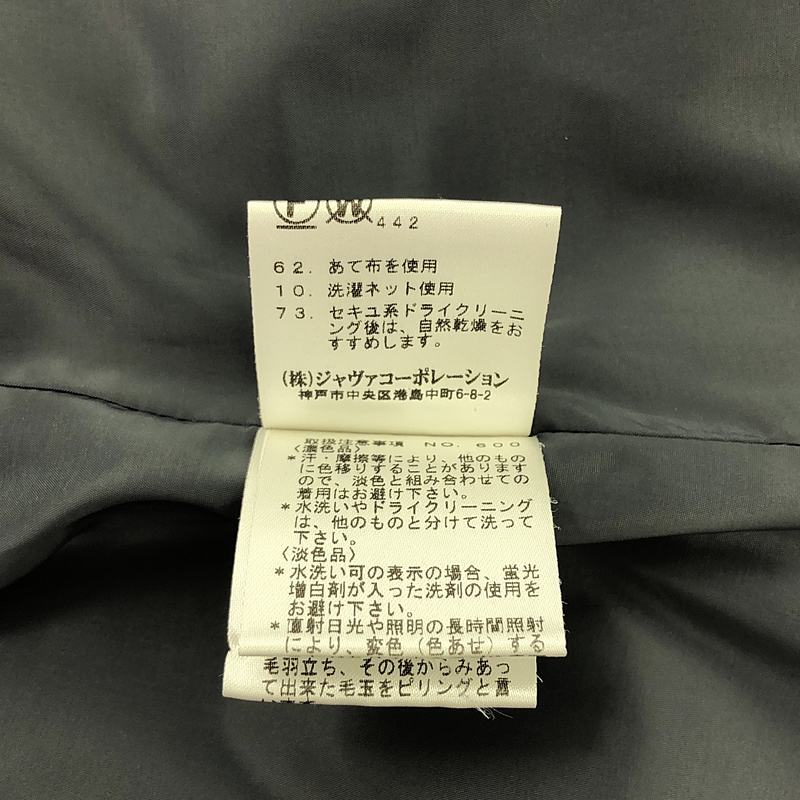 442
62. あて布を使用
10. 洗濯ネット使用
73. セキユ系ドライクリーニ
ング後は、自然乾燥をお
すすめします。
(株)ジャヴァコーポレーション
神戸市中央区港島中町6-8-2
取扱注意事項 NO. 600
〈濃色品〉
*汗・摩擦等により、他のもの
に色移りすることがあります
ので、淡色と組み合わせての
着用はお避け下さい。
*水洗いやドライクリーニング
は、他のものと分けて洗って
下さい。
〈淡色品〉
*水洗い可の表示の場合、蛍光
増白剤が入った洗剤の使用を
お避け下さい。
*直射日光や照明の長時間照射
により、変色（色あせ）する
毛羽立ち、その後からみあっ
て出来た毛玉をピリングと